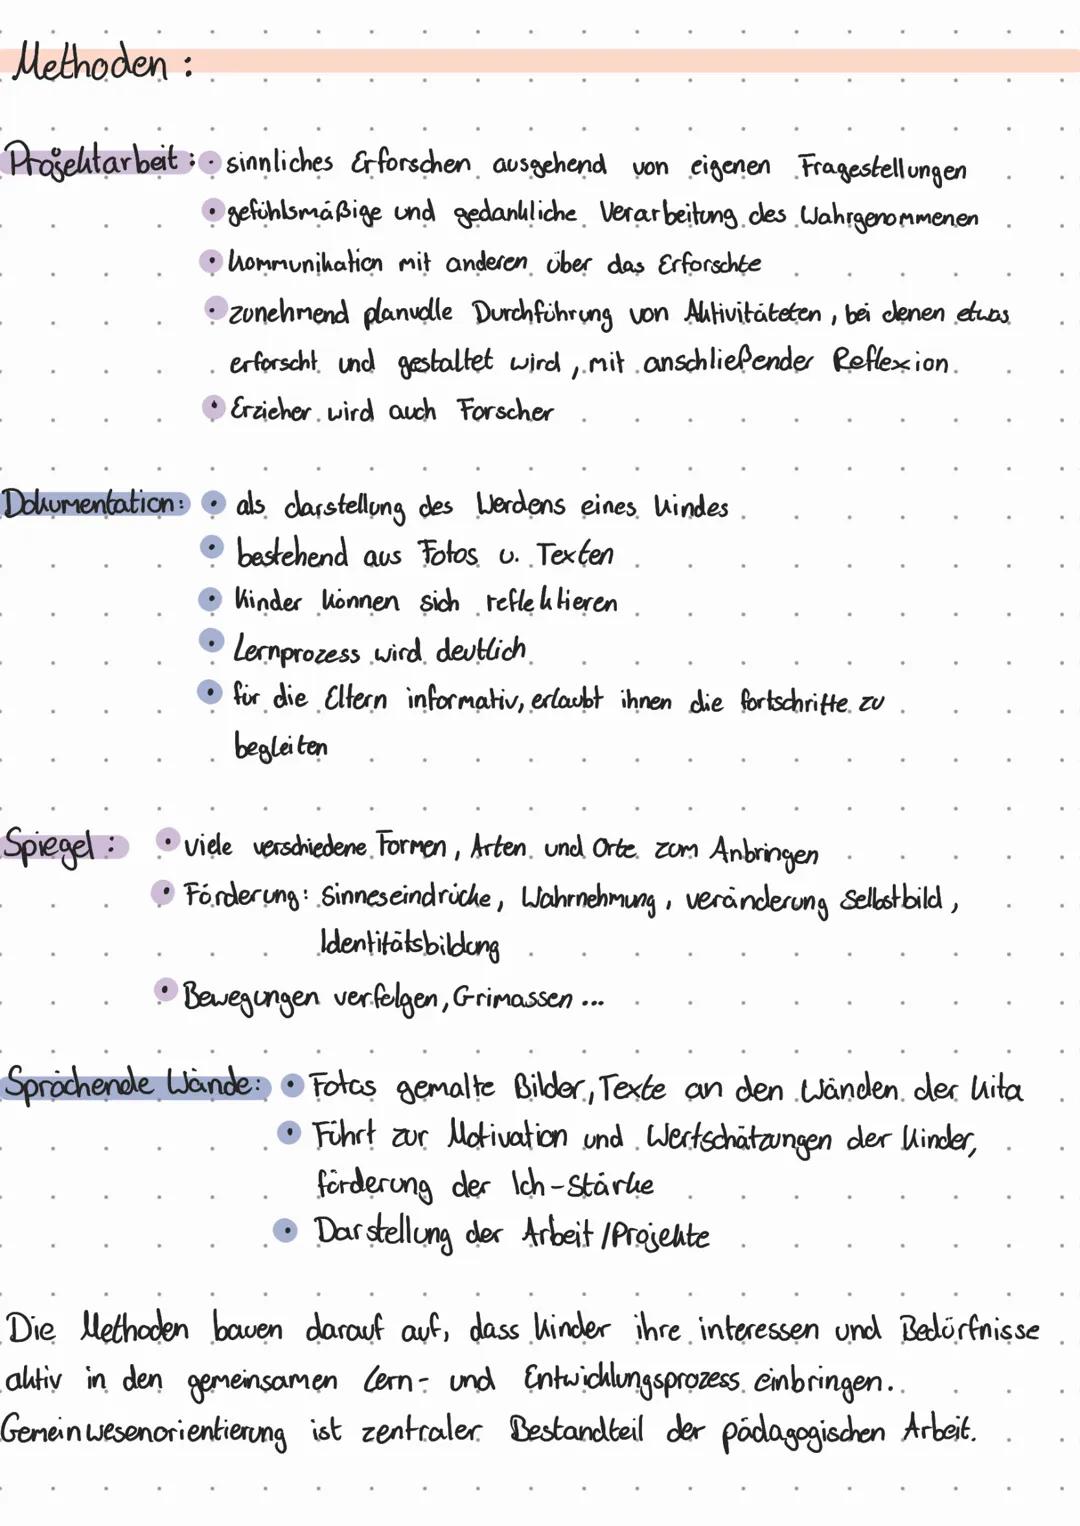 Methoden :
Projektarbeit : • sinnliches Erforschen ausgehend von eigenen Fragestellungen
• gefühlsmäßige und gedankliche Verarbeitung des Wahrgenommenen
• Kommunikation mit anderen über das Erforschte
• zunehmend planvolle Durchführung von Aktivitäteten, bei denen etwas
erforscht und gestaltet wird, mit anschließender Reflexion.
• Erzieher wird auch Forscher
Dokumentation: • als darstellung des Werdens eines Kindes
• bestehend aus Fotos u. Texten
• Kinder können sich reflektieren
• Lernprozess wird deutlich
• für die Eltern informativ, erlaubt ihnen die fortschritte zu
begleiten
Spiegel : • viele verschiedene Formen, Arten und Orte zum Anbringen
• Förderung: Sinneseindrücke, Wahrnehmung, veränderung Selbstbild,
Identitätsbildung
• Bewegungen verfolgen, Grimassen ...
Sprächende Wände: • Fotos gemalte Bilder, Texte an den Wänden der Kita
• Führt zur Motivation und Wertschätzungen der Kinder,
förderung der Ich-Stärke
• Darstellung der Arbeit/Projekte
Die Methoden bauen darauf auf, dass Kinder ihre interessen und Bedürfnisse
aktiv in den gemeinsamen Lern- und Entwicklungsprozess einbringen.
Gemeinwesenorientierung ist zentraler Bestandteil der pädagogischen Arbeit.